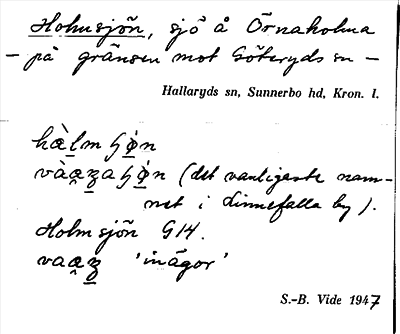 Holmsjön, sjö å Örnaholma
– på gränsen mot Göteryds sn –
Hallaryds sn, Sunnerbo hd, Kron. l.
(det vanligaste nam-
net i Linnefalla by).
Holmsjön G14.
'inägor'
S.-B. Vide 1947